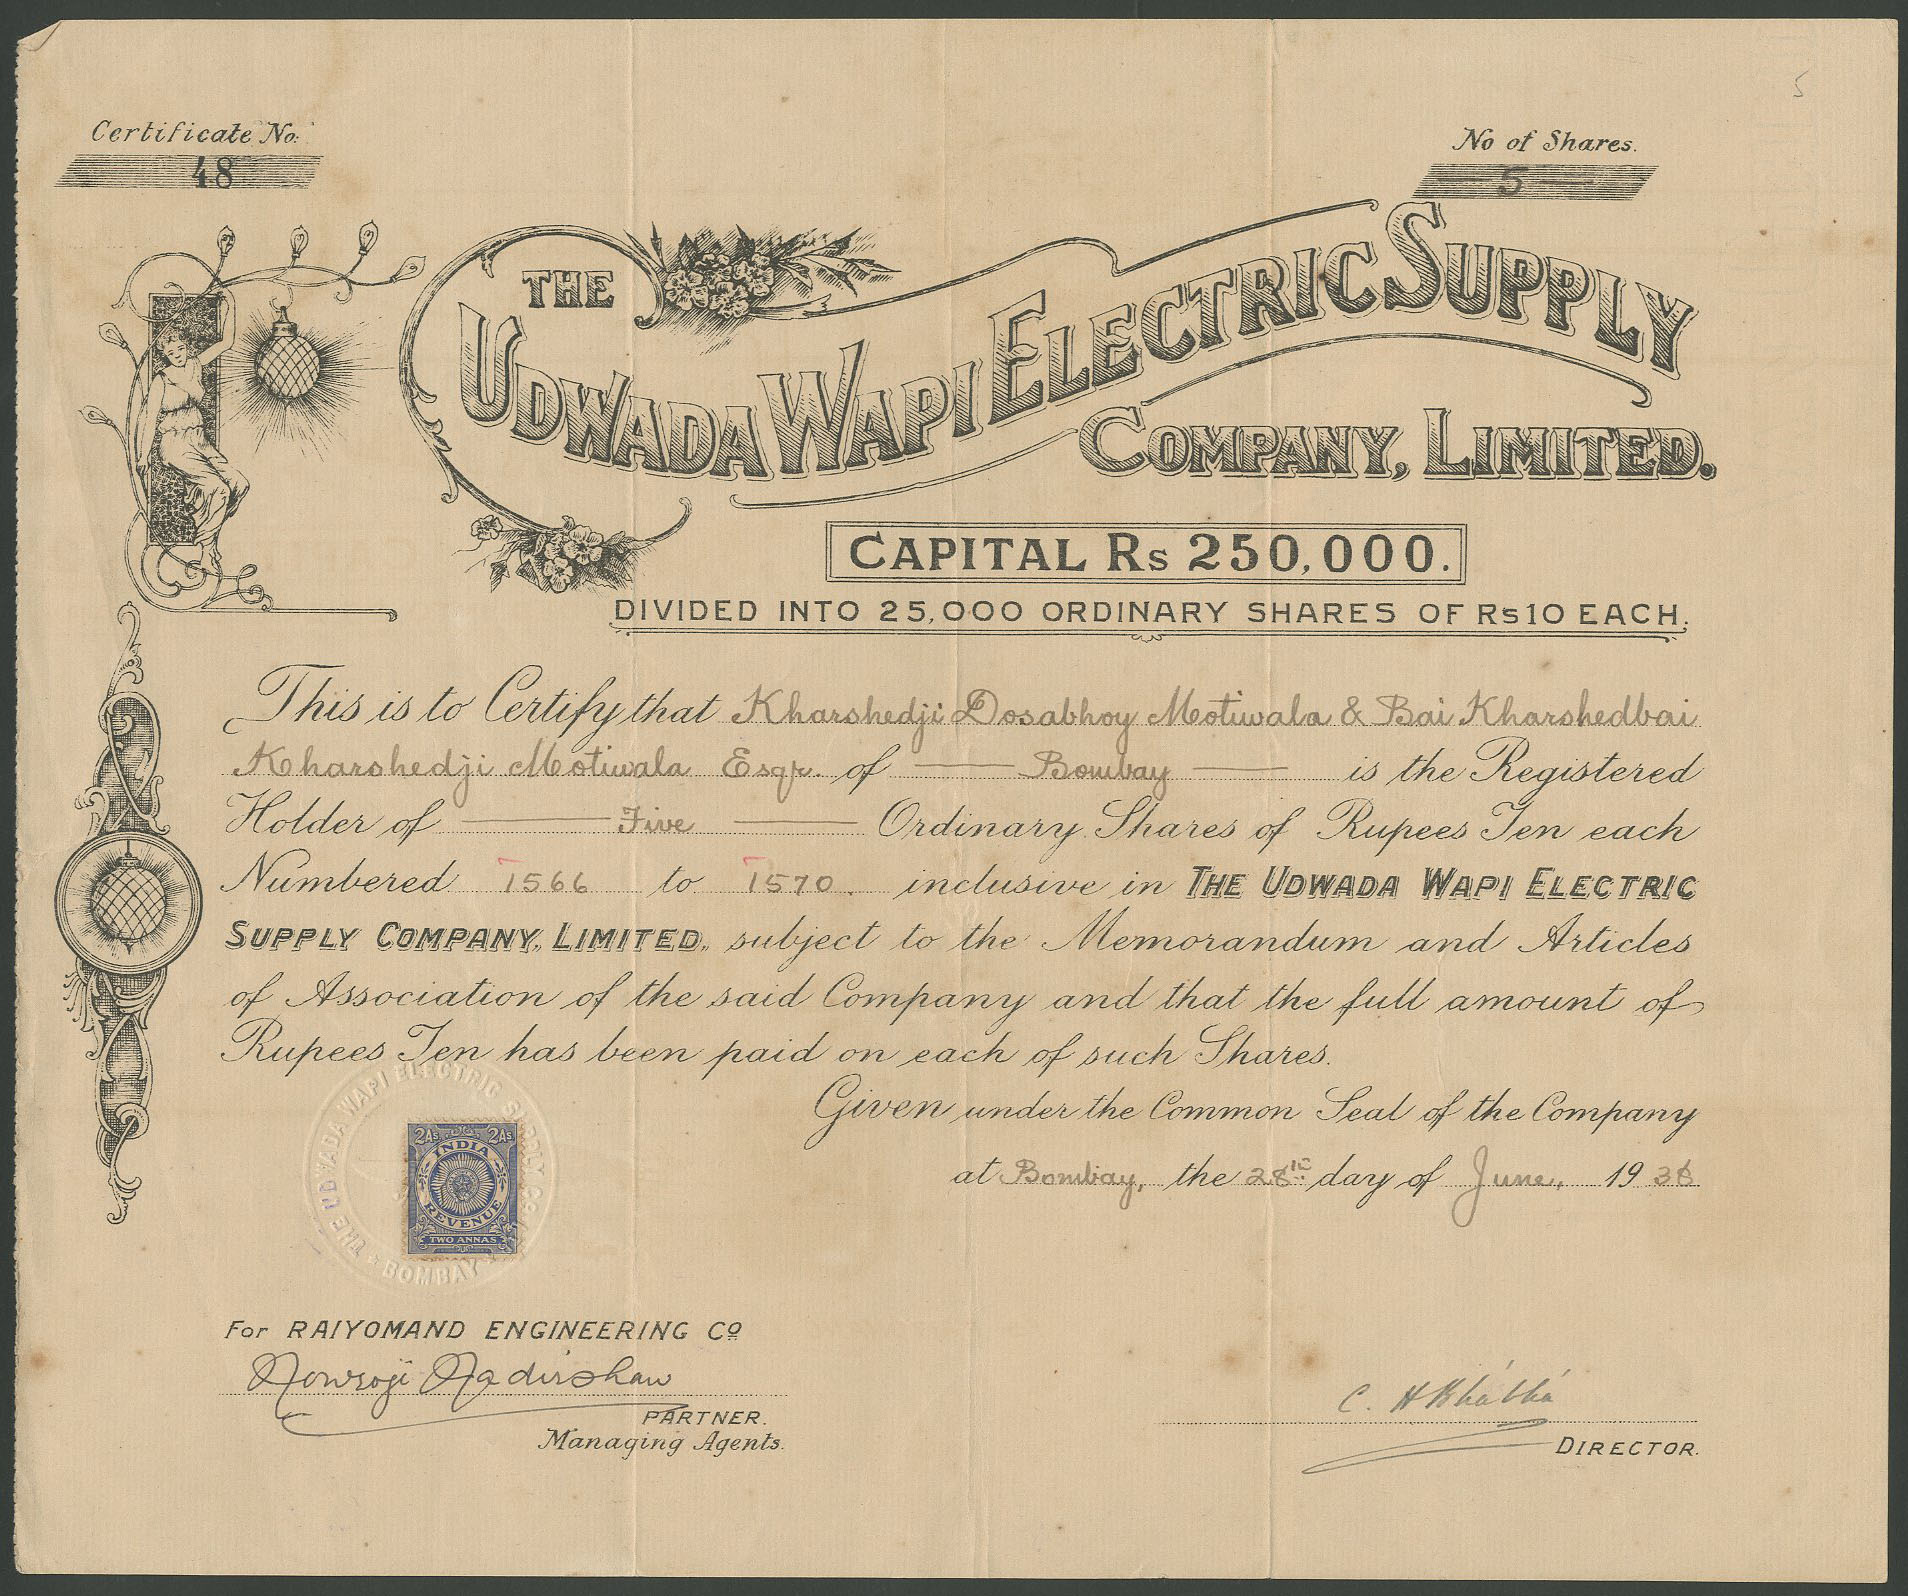 5
Certificate No:
48
No of Shares.
5
THE
UDWADA WAPI ELECTRIC SUPPLY
COMPANY, LIMITED.
CAPITAL Rs 250,000.
DIVIDED INTO 25,000 ORDINARY SHARES OF Rs 10 EACH.
This is to Certify that Kharshedji Dosabhoy Motiwala & Bai Kharshedbai
Kharshedji Motiwala Esqr. of Bombay is the Registered
Holder of Five Ordinary Shares of Rupees Ten each
Numbered 1566 to 1570. inclusive in THE UDWADA WAPI ELECTRIC
SUPPLY COMPANY, LIMITED, subject to the Memorandum and Articles
of Association of the said Company and that the full amount of
Rupees Ten has been paid on each of such Shares.
Given under the Common Seal of the Company
at Bombay, the 28th day of June, 19
THE UDWADA WAPI ELECTRIC SUPPLY CO.
BOMBAY
2As 2As
INDIA
REVENUE
TWO ANNAS
For RAIYOMAND ENGINEERING Co
Nowroji Nadirshaw
PARTNER.
Managing Agents.
C. H Bhabha
DIRECTOR.